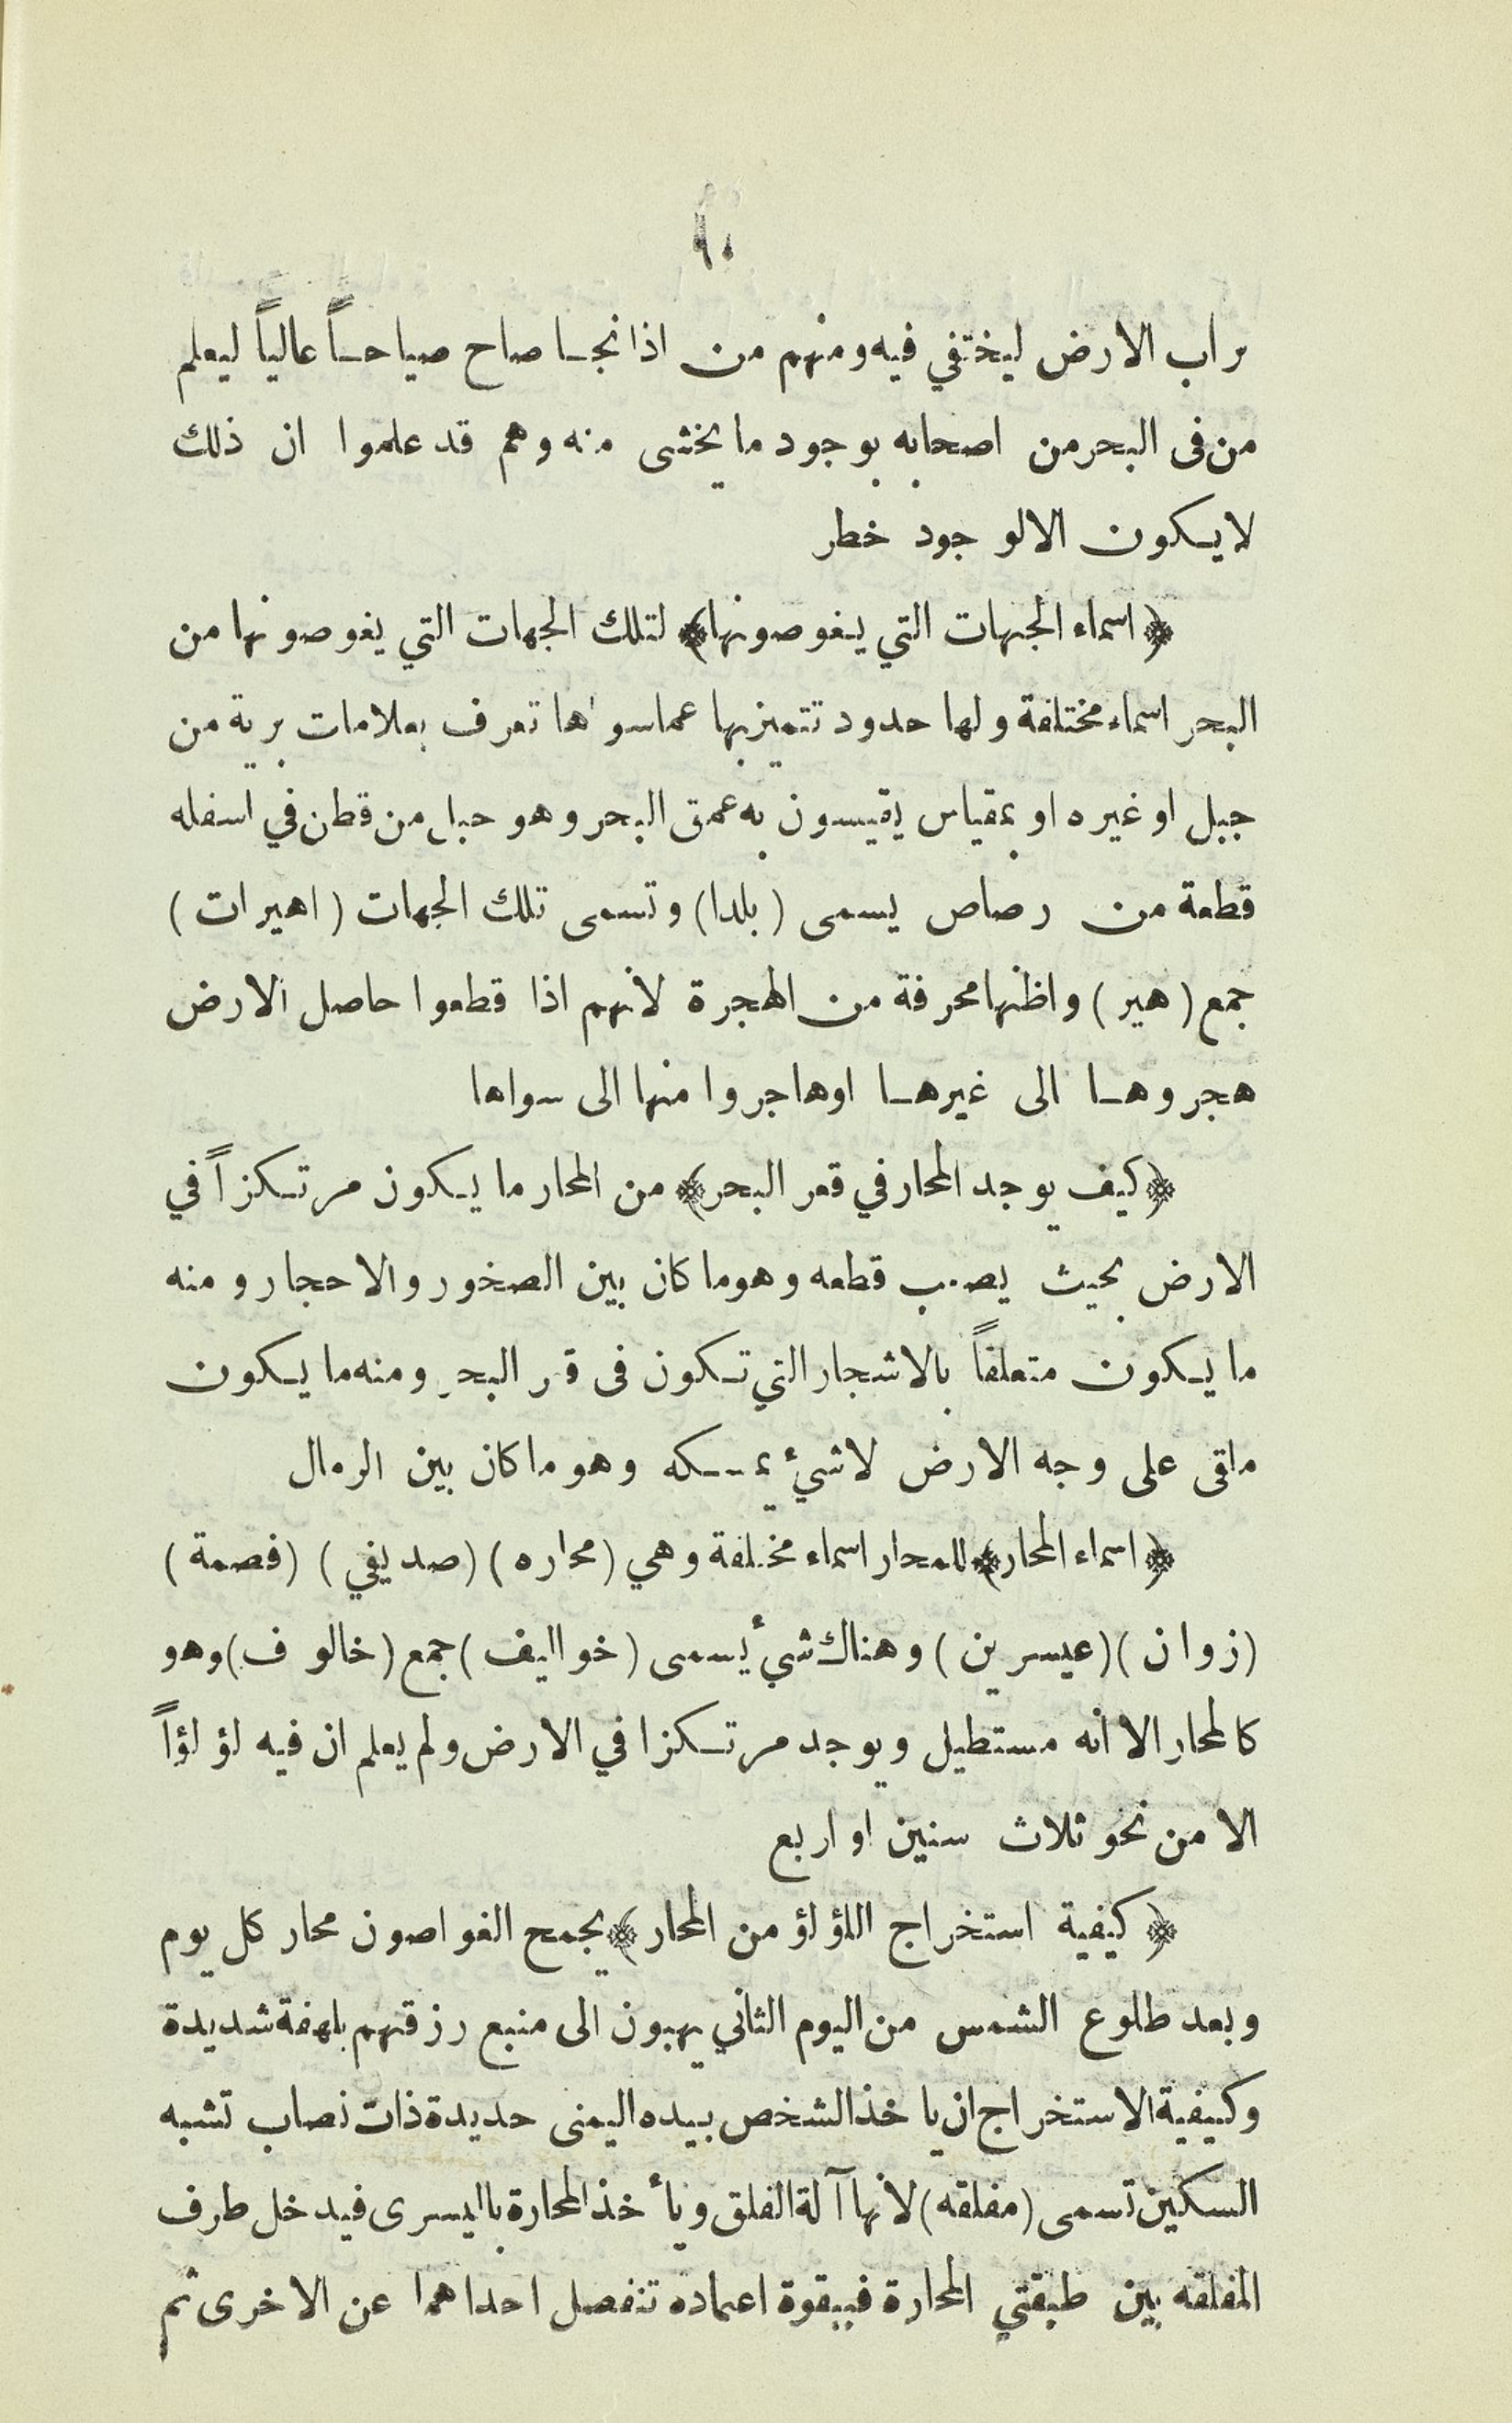 ٩٠
تراب الارض ليختفي فيه ومنهم من اذا نجا صاح صياحاً عالياً ليعلم
من فى البحر من اصحابه بوجود ما يخشى منه وهم قد علموا ان ذلك
لا يكون الا لوجود خطر
﴿ اسماء الجهات التي يغوصونها ﴾ لتلك الجهات التي يغوصونها من
البحر اسماء مختلفة ولها حدود تتميز بها عما سواها تعرف بعلامات برية من
جبل او غيره او بمقياس يقيسون به عمق البحر وهو حبل من قطن في اسفله
قطعة من رصاص يسمى ( بلدا ) وتسمى تلك الجهات ( اهيرات )
جمع ( هير ) واظنها محرفة من الهجرة لانهم اذا قطعوا حاصل الارض
هجروها الى غيرها او هاجروا منها الى سواها
﴿ كيف يوجد المحار في قعر البحر ﴾ من المحار ما يكون مرتكزاً في
الارض بحيث يصعب قطعه وهو ما كان بين الصخور والاحجار ومنه
ما يكون متعلقاً بالاشجار التي تكون فى قعر البحر ومنه ما يكون
ملقى على وجه الارض لا شيء يمسكه وهو ما كان بين الرمال
﴿ اسماء المحار ﴾ للمحار اسماء مختلفة وهي ( محاره ) ( صديفي ) ( فصمة )
( زوان ) ( عيسرين ) وهناك شيأ يسمى ( خواليف ) جمع ( خالوف ) وهو
كالمحار الا انه مستطيل ويوجد مرتكزا في الارض ولم يعلم ان فيه لؤلؤاً
الا من نحو ثلاث سنين او اربع
﴿ كيفية استخراج اللؤلؤ من المحار ﴾ يجمع الغواصون محار كل يوم
وبعد طلوع الشمس من اليوم الثاني يهبون الى منبع رزقهم بلهفة شديدة
وكيفية الاستخراج ان ياخذ الشخص بيده اليمنى حديدة ذات نصاب تشبه
السكين تسمى ( مفلقه ) لانها آلة الفلق ويأخذ المحارة باليسرى فيدخل طرف
المفلقه بين طبقتي المحارة فبقوة اعتماده تنفصل احداهما عن الاخرى ثم